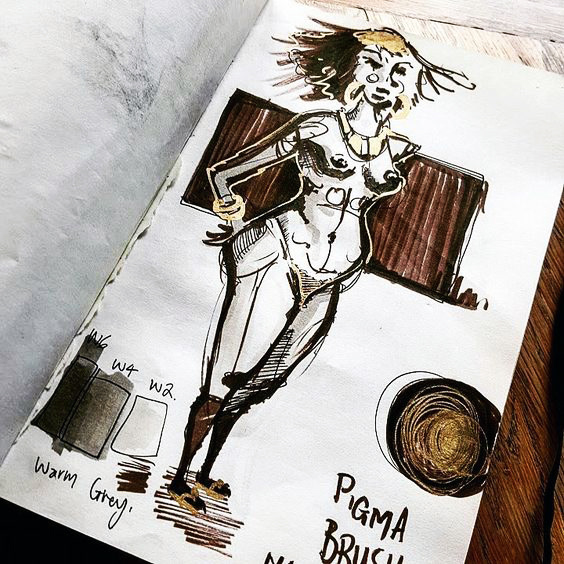 W6
W4
W2.
Warm Grey.
PIGMA
BRUSH